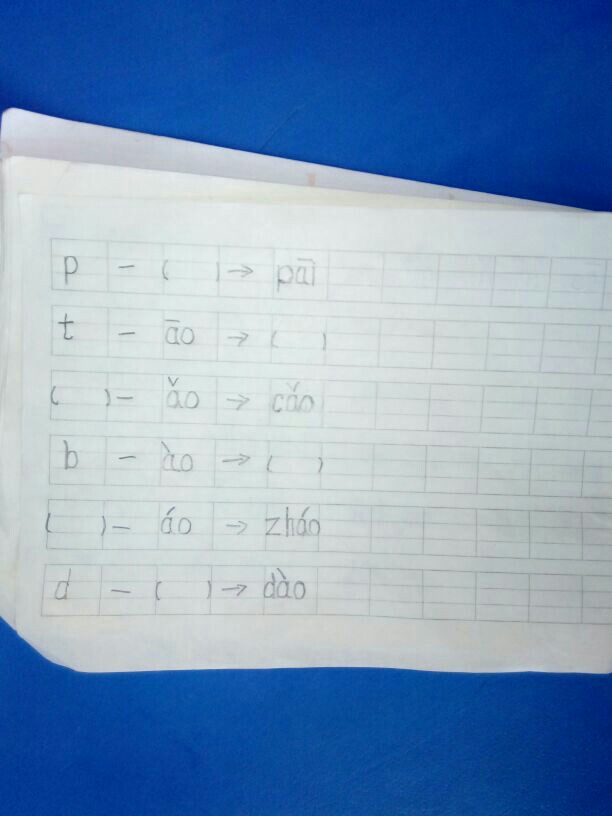 p — ( ) → pāi
t — āo → ( )
( ) — ǎo → cǎo
b — ào → ( )
( ) — áo → zháo
d — ( ) → dào